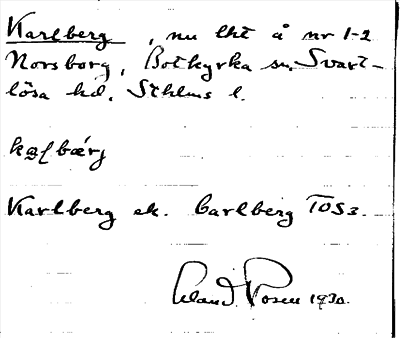 Karlberg, nu lht å nr 1-2
Norsborg, Botkyrka sn, Svart-
lösa hd, Sthlms l.
Karlberg ek. Carlberg TOS3.
Rosen 1930.